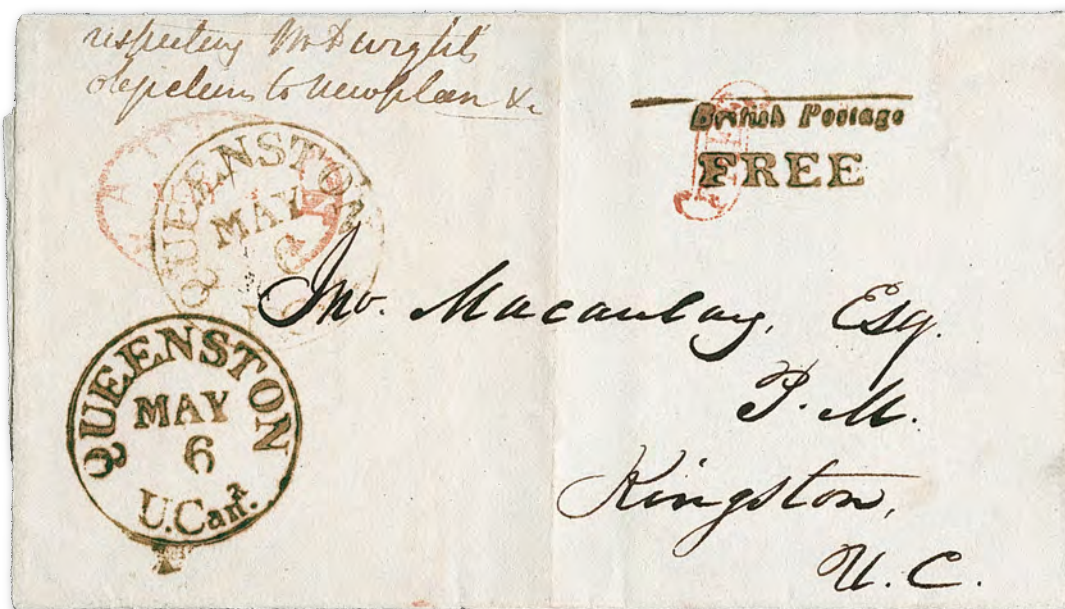 respecting Mr Dwight's
objections to new plan &c
British Postage
FREE
QUEENSTON
MAY
6
QUEENSTON
MAY
6
U.Cana.
Jno. Macaulay, Esq.
P. M.
Kingston,
U. C.